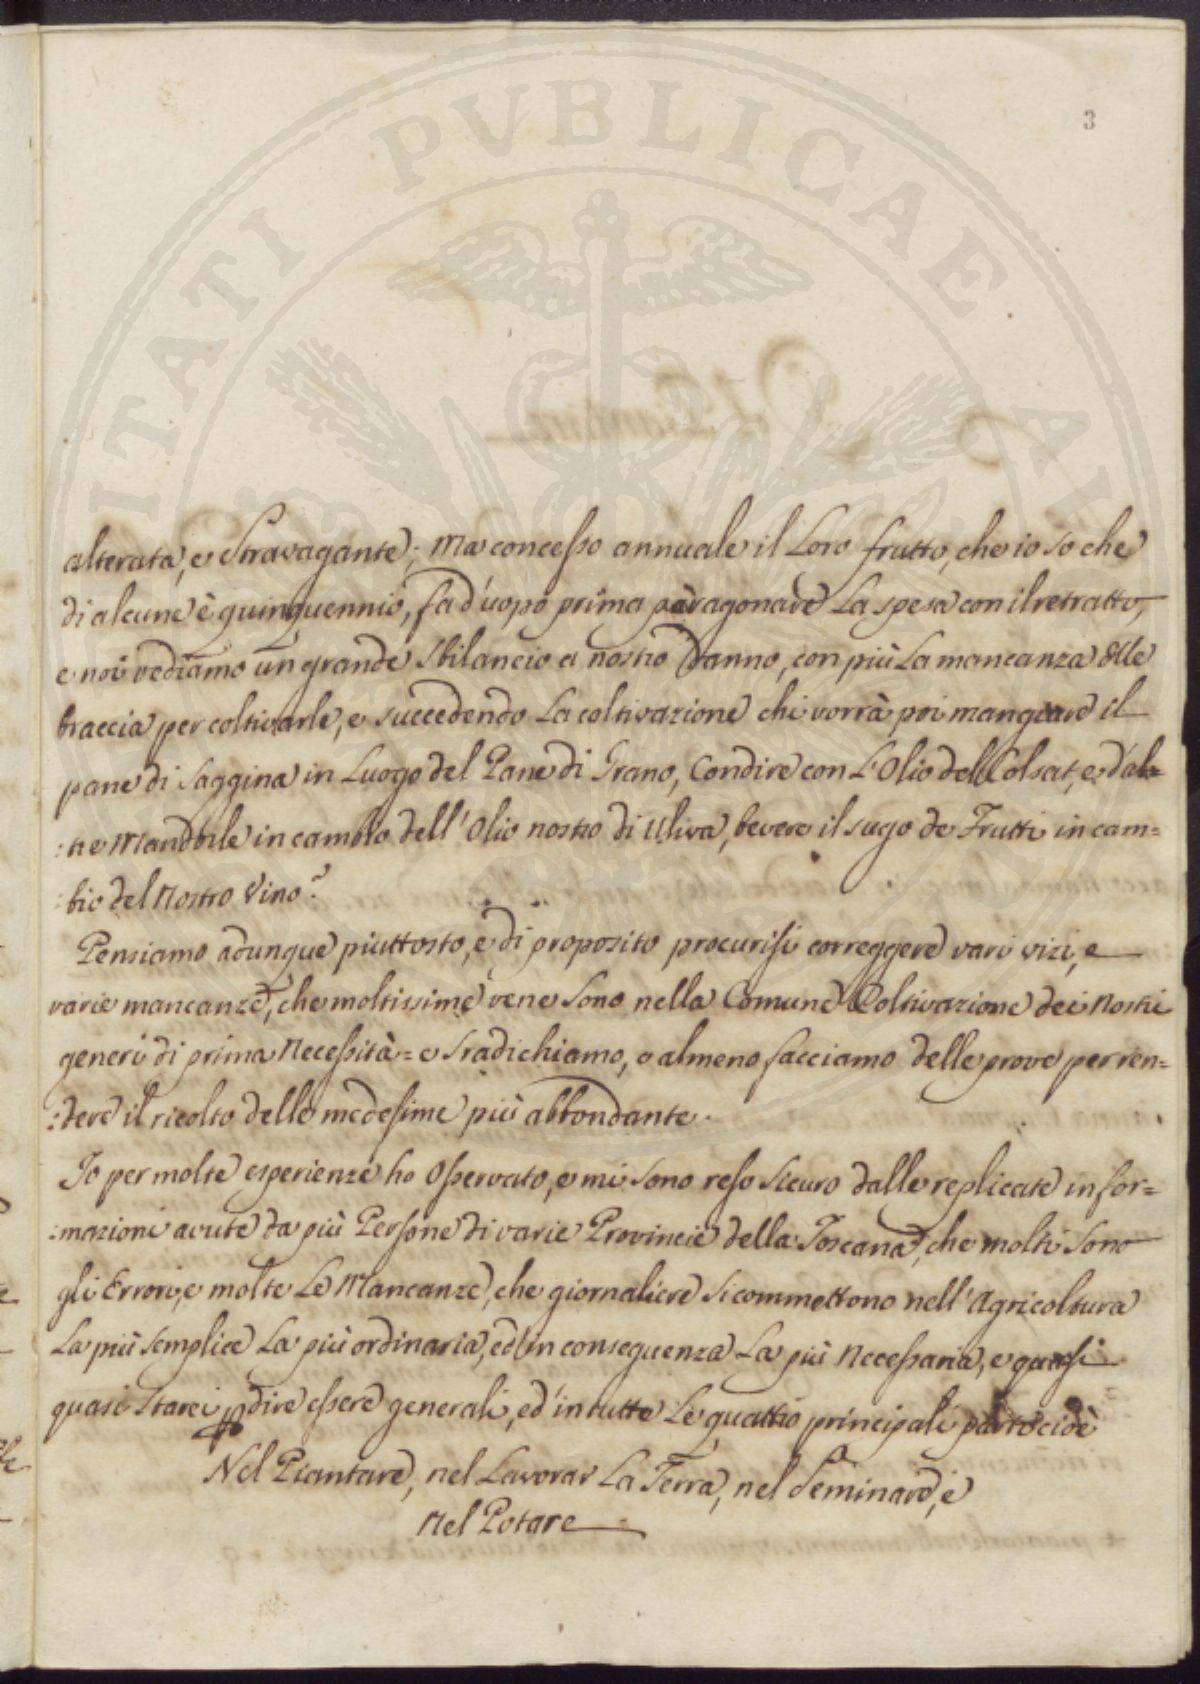 3
alterata, e Stravagante; Ma concesso annuale il Loro frutto, che io so che
di alcune è quinquennio, fa d'uopo prima paragonare La spesa con il retratto,
e noi vediamo un grande sbilancio a nostro Danno, con più La mancanza delle
braccia per coltivarle, e succedendo La coltivazione chi vorrà poi mangiare il
pane di Saggina in Luogo del Pane di Grano, Condire con L'Olio del Colsat, e d'al=
:tre Mandorle in cambio dell'Olio nostro di Uliva, bevere il sugo de Frutti in cam=
:bio del Nostro Vino?
Pensiamo adunque piuttosto, e di proposito procurisi correggere vari vizi, e
varie mancanze, che moltissime vene sono nella Comune Coltivazione dei Nostri
generi di prima Necessità = e sradichiamo, o almeno facciamo delle prove per ren=
:dere il ricolto delle medesime più abbondante.
Io per molte esperienze ho Osservato, e mi sono reso sicuro dalle replicate infor=
:mazioni avute da più Persone di varie Provincie della Toscana, che molti sono
gli Errori, e molte Le Mancanze, che giornaliere si commettono nell'Agricoltura
La più semplice La più ordinaria, ed in conseguenza La più Necessaria, e quasi
quasi starei p dire essere generali, ed in tutte Le quattro principali parti cioè
Nel Piantare, nel Lavorar La Terra, nel Seminare, e
Nel Potare
PUBLICAE